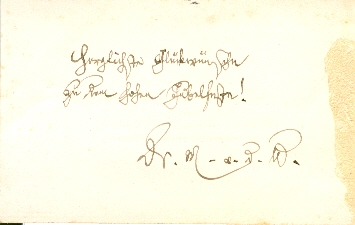 Herzlichste Glückwünsche
zu dem hohen Jubelfeste!
Dr. M. v. d. W.